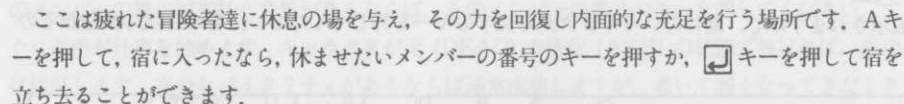 ここは疲れた冒険者達に休息の場を与え，その力を回復し内面的な充足を行う場所です．Aキ
ーを押して，宿に入ったなら，休ませたいメンバーの番号のキーを押すか，↵キーを押して宿を
立ち去ることができます．